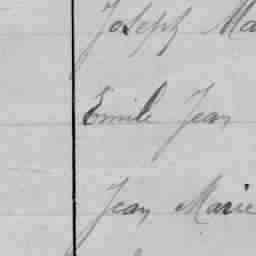 Joseph Ma
Emile Jean
Jean Marie